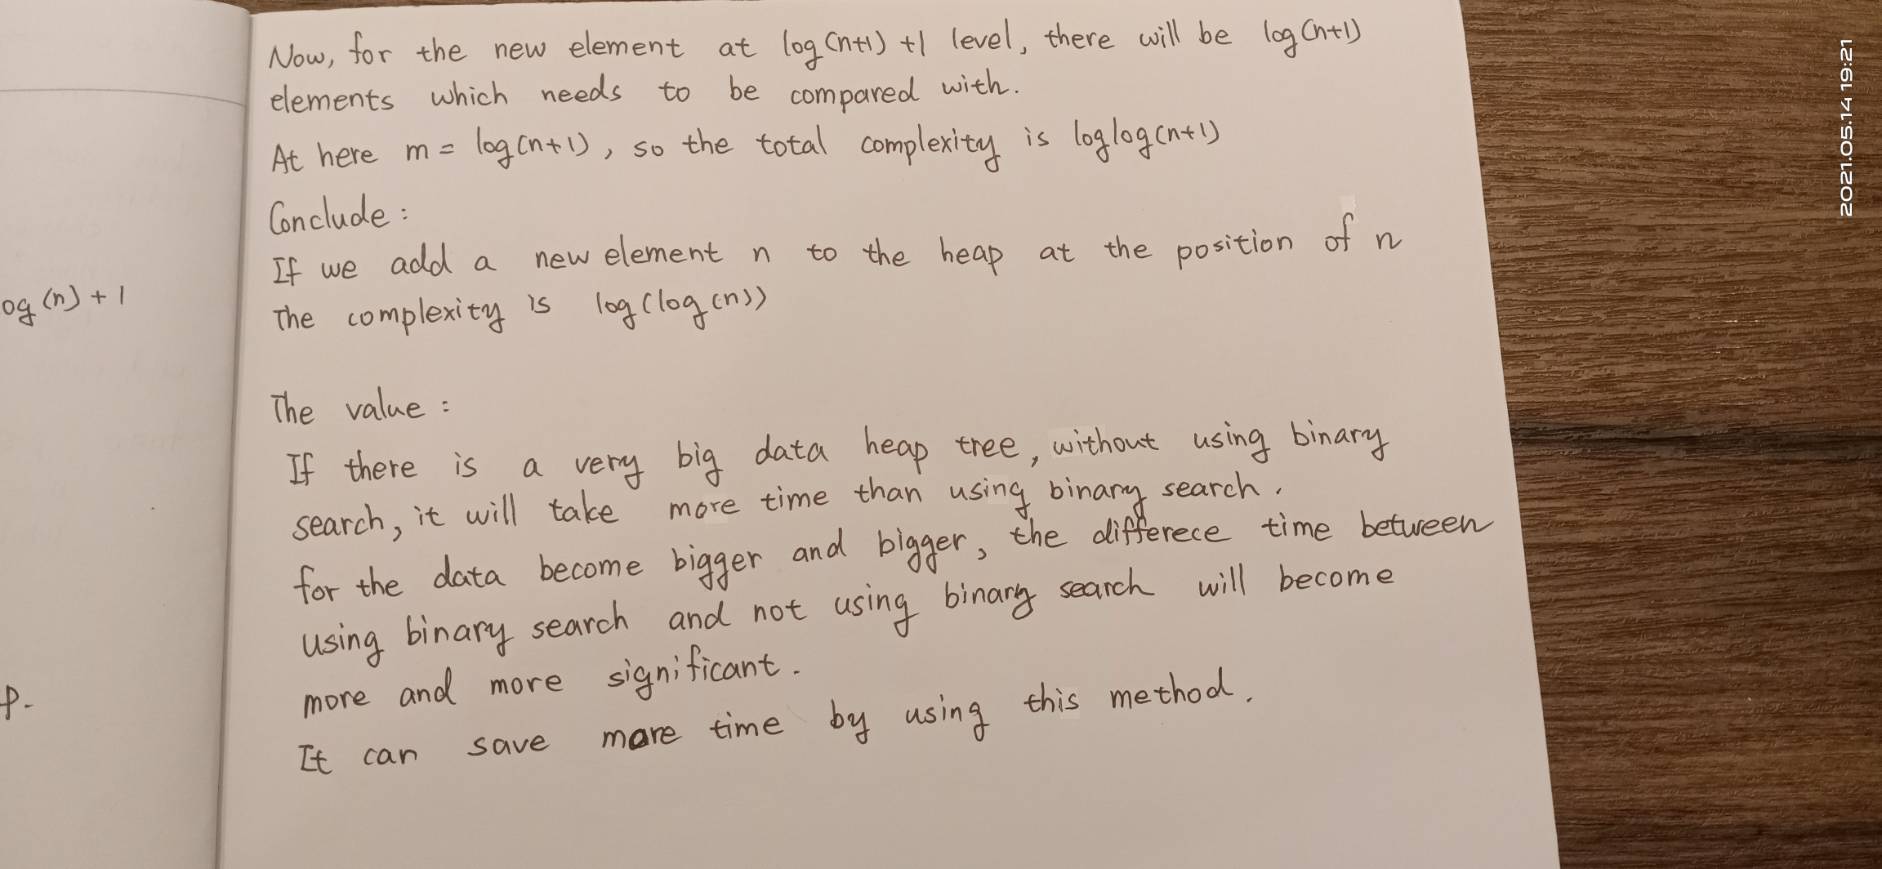 Now, for the new element at log(n+1) +1 level, there will be log(n+1)
elements which needs to be compared with.
At here m = log(n+1), so the total complexity is loglog(n+1)
Conclude :
If we add a new element n to the heap at the position of n
The complexity is log(log(n))
The value :
If there is a very big data heap tree, without using binary
search, it will take more time than using binary search.
for the data become bigger and bigger, the differece time between
using binary search and not using binary search will become
more and more significant.
It can save more time by using this method.
og(n) + 1
p.
2021.05.14 19:21